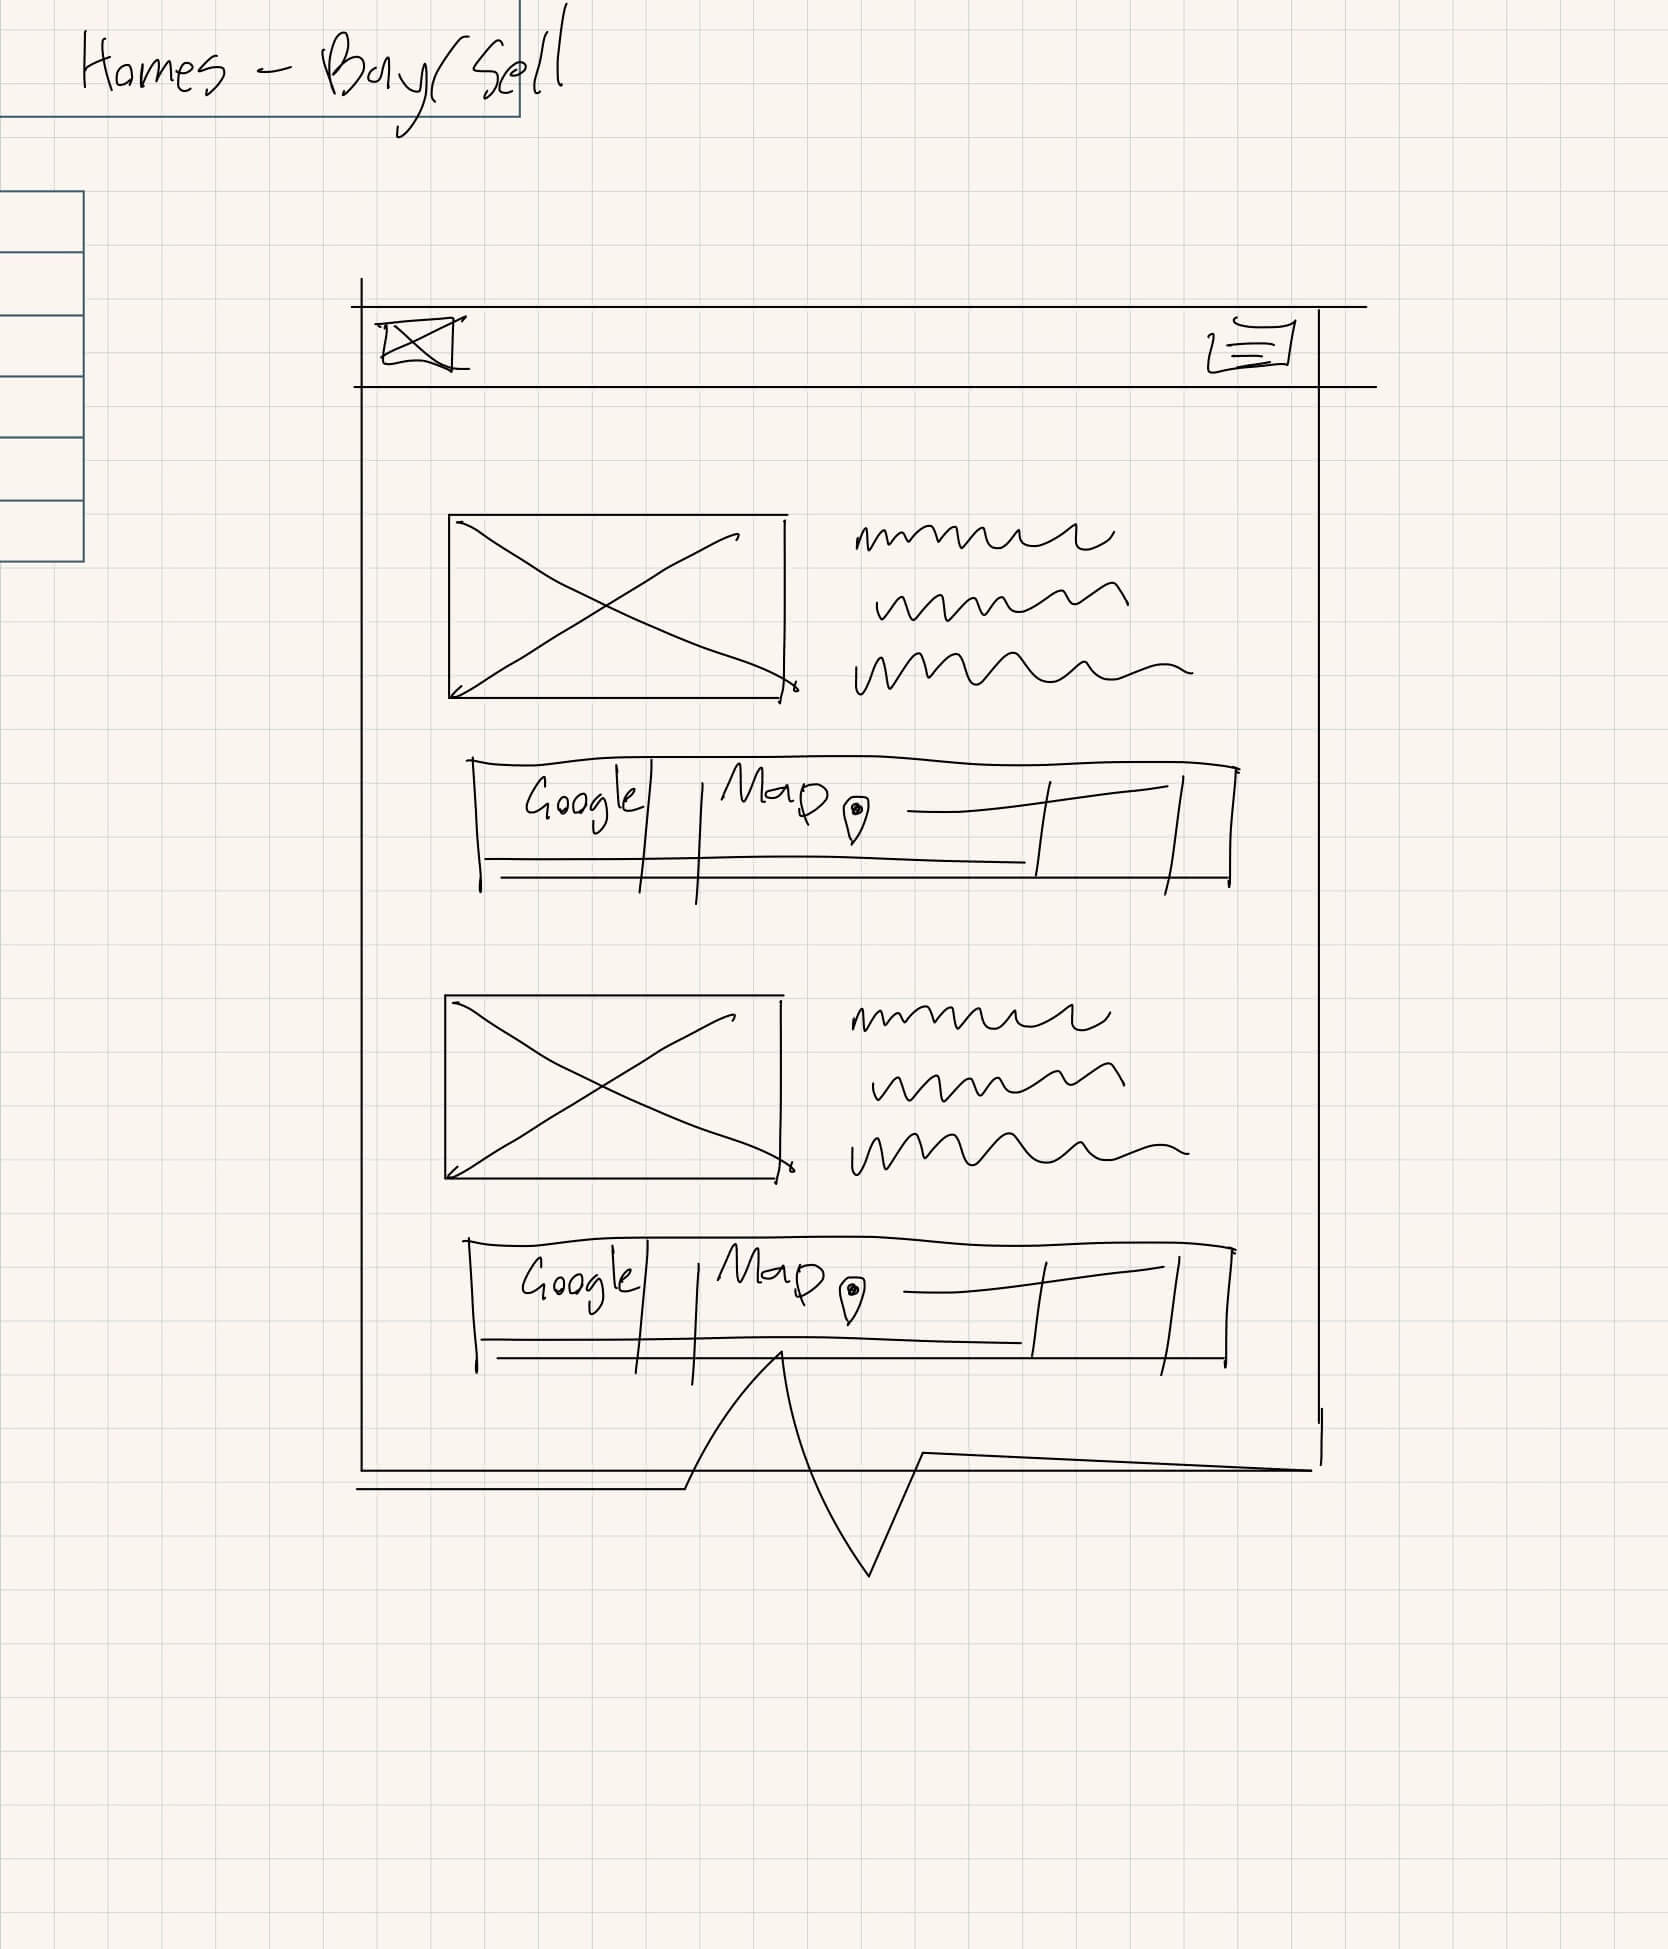 Homes - Bay/Sell
Google Map
Google Map